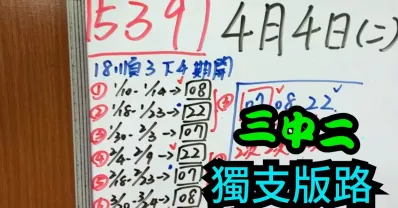 539
4月4日(二)
18順3下4期開
① 1/10-1/14→08
② 1/18-1/23→22
③ 1/30-2/3→07
④ 2/4-2/9→22
⑤ 2/18-2/23→07
3/4→08
07 08 22
三中二
獨支版路